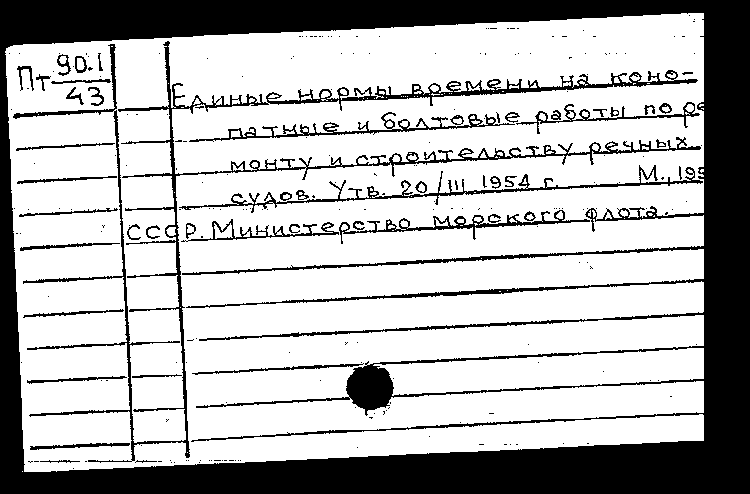 Пт 90.1
43
Единые нормы времени на коно-
патные и болтовые работы по ре
монту и строительству речных
судов. Утв. 20/III 1954 г. М., 195
СССР. Министерство морского флота.